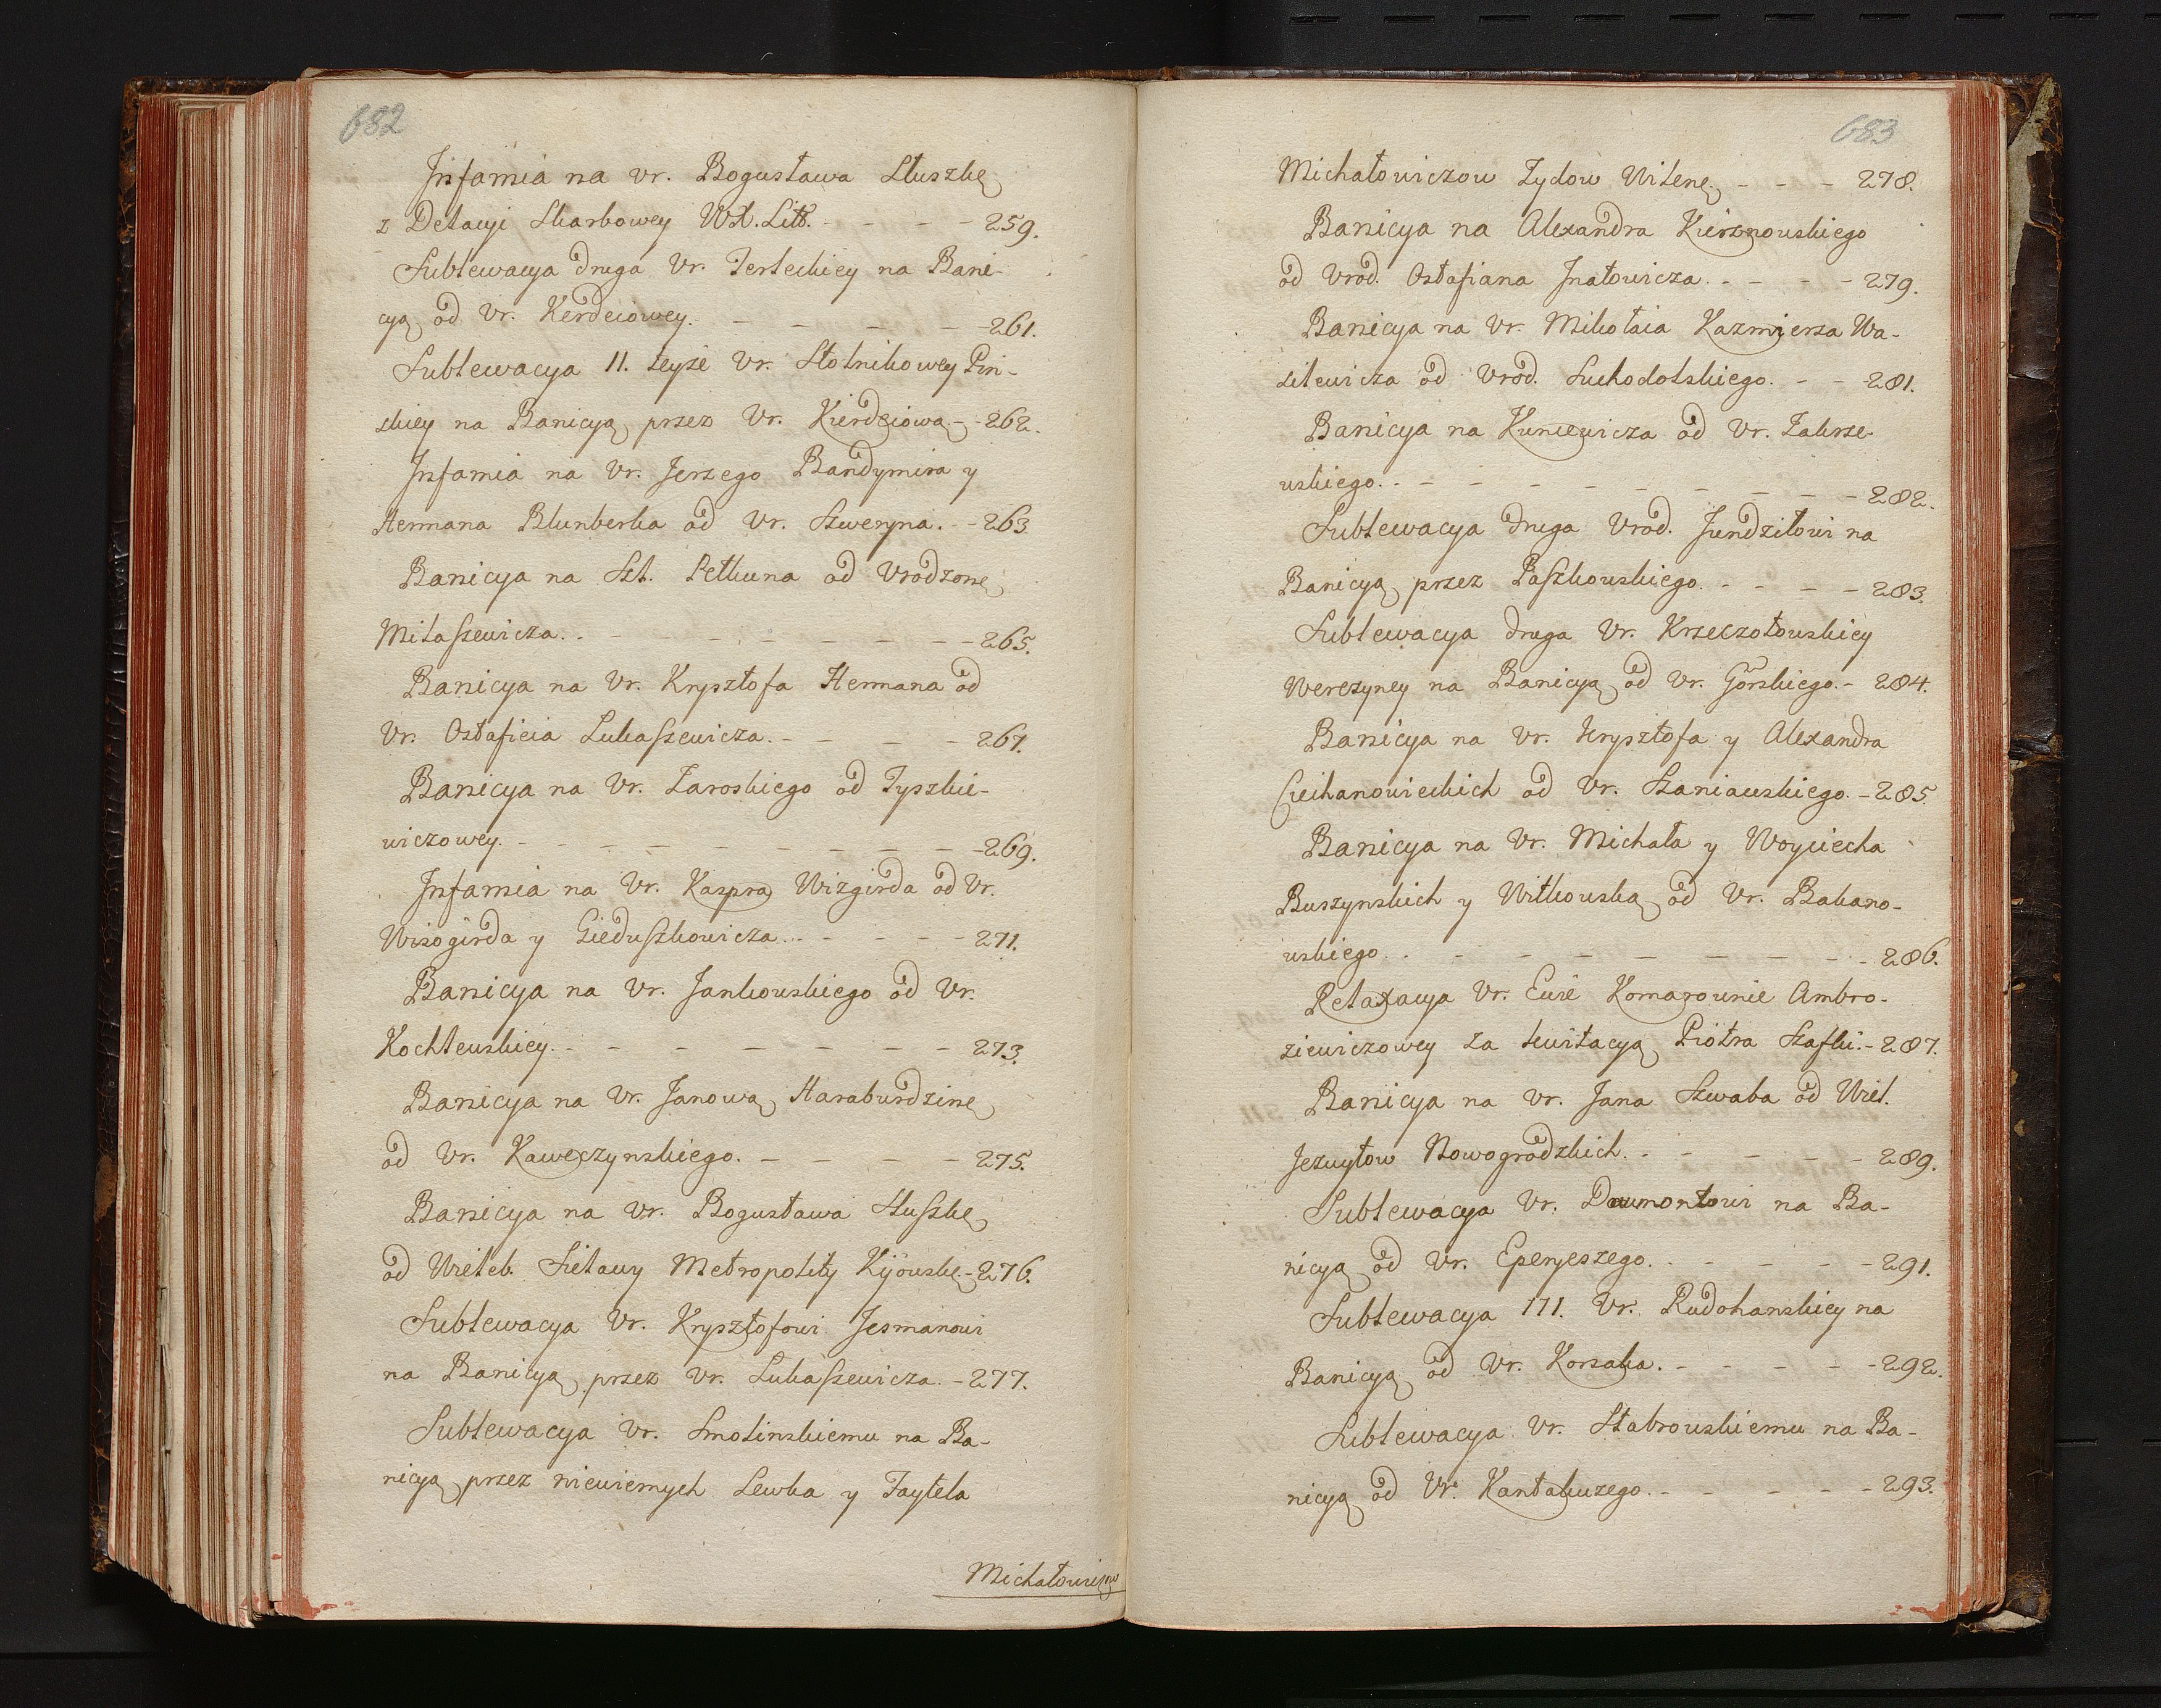 682
Infamia na Vr. Bogusława Słuszkę
z Delacyi Skarbowey WX. Litt. - - - - 259.
Sublewacya druga Vr. Terleckiey na Bani-
cyą od Vr. Kerdeiowey. - - - - - 261.
Sublewacya 11. teyże Vr. Stolnikowey Pin-
skiey na Banicyą przez Vr. Kierdeiową - 262.
Infamia na Vr. Jerzego Bandymira y
Hermana Blunberka od Vr. Szweryna. - 263
Banicya na Szl. Petkuna od Vrodzone
Milaszewicza. - - - - - - - - 265.
Banicya na Vr. Krysztofa Hermana od
Vr. Ostaficia Lukaszewicza. - - - - 267.
Banicya na Vr. Zaroskiego od Tyszkie-
wiczowey. - - - - - - - - 269.
Infamia na Vr. Kaspra Wizgirda od Vr.
Wizogirda y Gieduszkowicza. - - - - 271.
Banicya na Vr. Jankowskiego od Vr.
Kochlewskiey. - - - - - - - 273.
Banicya na Vr. Janową Haraburdzinę
od Vr. Kawęczynskiego. - - - - 275.
Banicya na Vr. Bogusława Słuszkę
od Wieleb. Sielawy Metropolity Kijowsk. - 276.
Sublewacya Vr. Krysztofowi Jesmanowi
na Banicyą przez Vr. Lukaszewicza. - 277.
Sublewacya Vr. Smolinskiemu na Ba-
nicyą przez niewiernych Lewka y Faytela
Michałowiczow
683
Michałowiczow Zydow Wilenę. - - - 278.
Banicya na Alexandra Kierznowskiego
od Vrod. Ostafiana Jnatowicza. - - - - 279.
Banicya na Vr. Mikołaia Kazmierza Wa-
silewicza od Vrod. Suchodolskiego. - - 281.
Banicya na Kuncewicza od Vr. Zakrze-
wskiego. - - - - - - - - - 282.
Sublewacya druga Vrod. Jundziłowi na
Banicyą przez Paszkowskiego. - - - - 283.
Sublewacya druga Vr. Krzeczotowskiey
Werezyney na Banicyą od Vr. Gorskiego. - 284.
Banicya na Vr. Krysztofa y Alexandra
Ciechanowieckich od Vr. Staniawskiego. - 285.
Banicya na Vr. Michała y Woyciecha
Buszynskich y Witkowską od Vr. Bakano-
wskiego. - - - - - - - - - 286.
Relaxacya Vr. Ewie Komarownie Ambro-
ziewiczowey za kwitacyą Piotra Szafki. - 287.
Banicya na Vr. Jana Szwaba od Wiel.
Jezuytow Nowogrodzkich. - - - - - 289.
Sublewacya Vr. Daumontowi na Ba-
nicyą od Vr. Eperyeszego. - - - - - 291.
Sublewacya 111. Vr. Rudohanskiey na
Banicyą od Vr. Korsaka. - - - - - 292.
Sublewacya Vr. Stabrowskiemu na Ba-
nicyą od Vr. Kantakuzego. - - - - - 293.